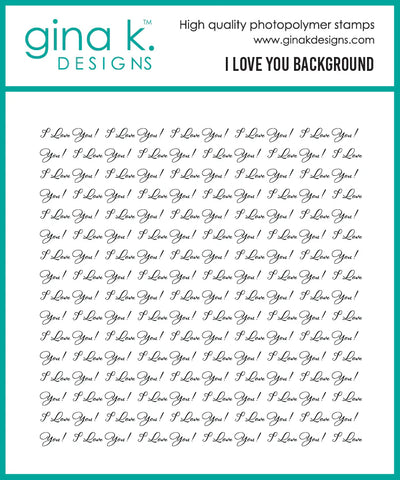 gina k.™
DESIGNS
High quality photopolymer stamps
www.ginakdesigns.com
I LOVE YOU BACKGROUND
I Love You! I Love You! I Love You! I Love You! I Love You!
You! I Love You! I Love You! I Love You! I Love You! I Love
I Love You! I Love You! I Love You! I Love You! I Love You!
You! I Love You! I Love You! I Love You! I Love You! I Love
I Love You! I Love You! I Love You! I Love You! I Love You!
You! I Love You! I Love You! I Love You! I Love You! I Love
I Love You! I Love You! I Love You! I Love You! I Love You!
You! I Love You! I Love You! I Love You! I Love You! I Love
I Love You! I Love You! I Love You! I Love You! I Love You!
You! I Love You! I Love You! I Love You! I Love You! I Love
I Love You! I Love You! I Love You! I Love You! I Love You!
You! I Love You! I Love You! I Love You! I Love You! I Love
I Love You! I Love You! I Love You! I Love You! I Love You!
You! I Love You! I Love You! I Love You! I Love You! I Love
I Love You! I Love You! I Love You! I Love You! I Love You!
You! I Love You! I Love You! I Love You! I Love You! I Love